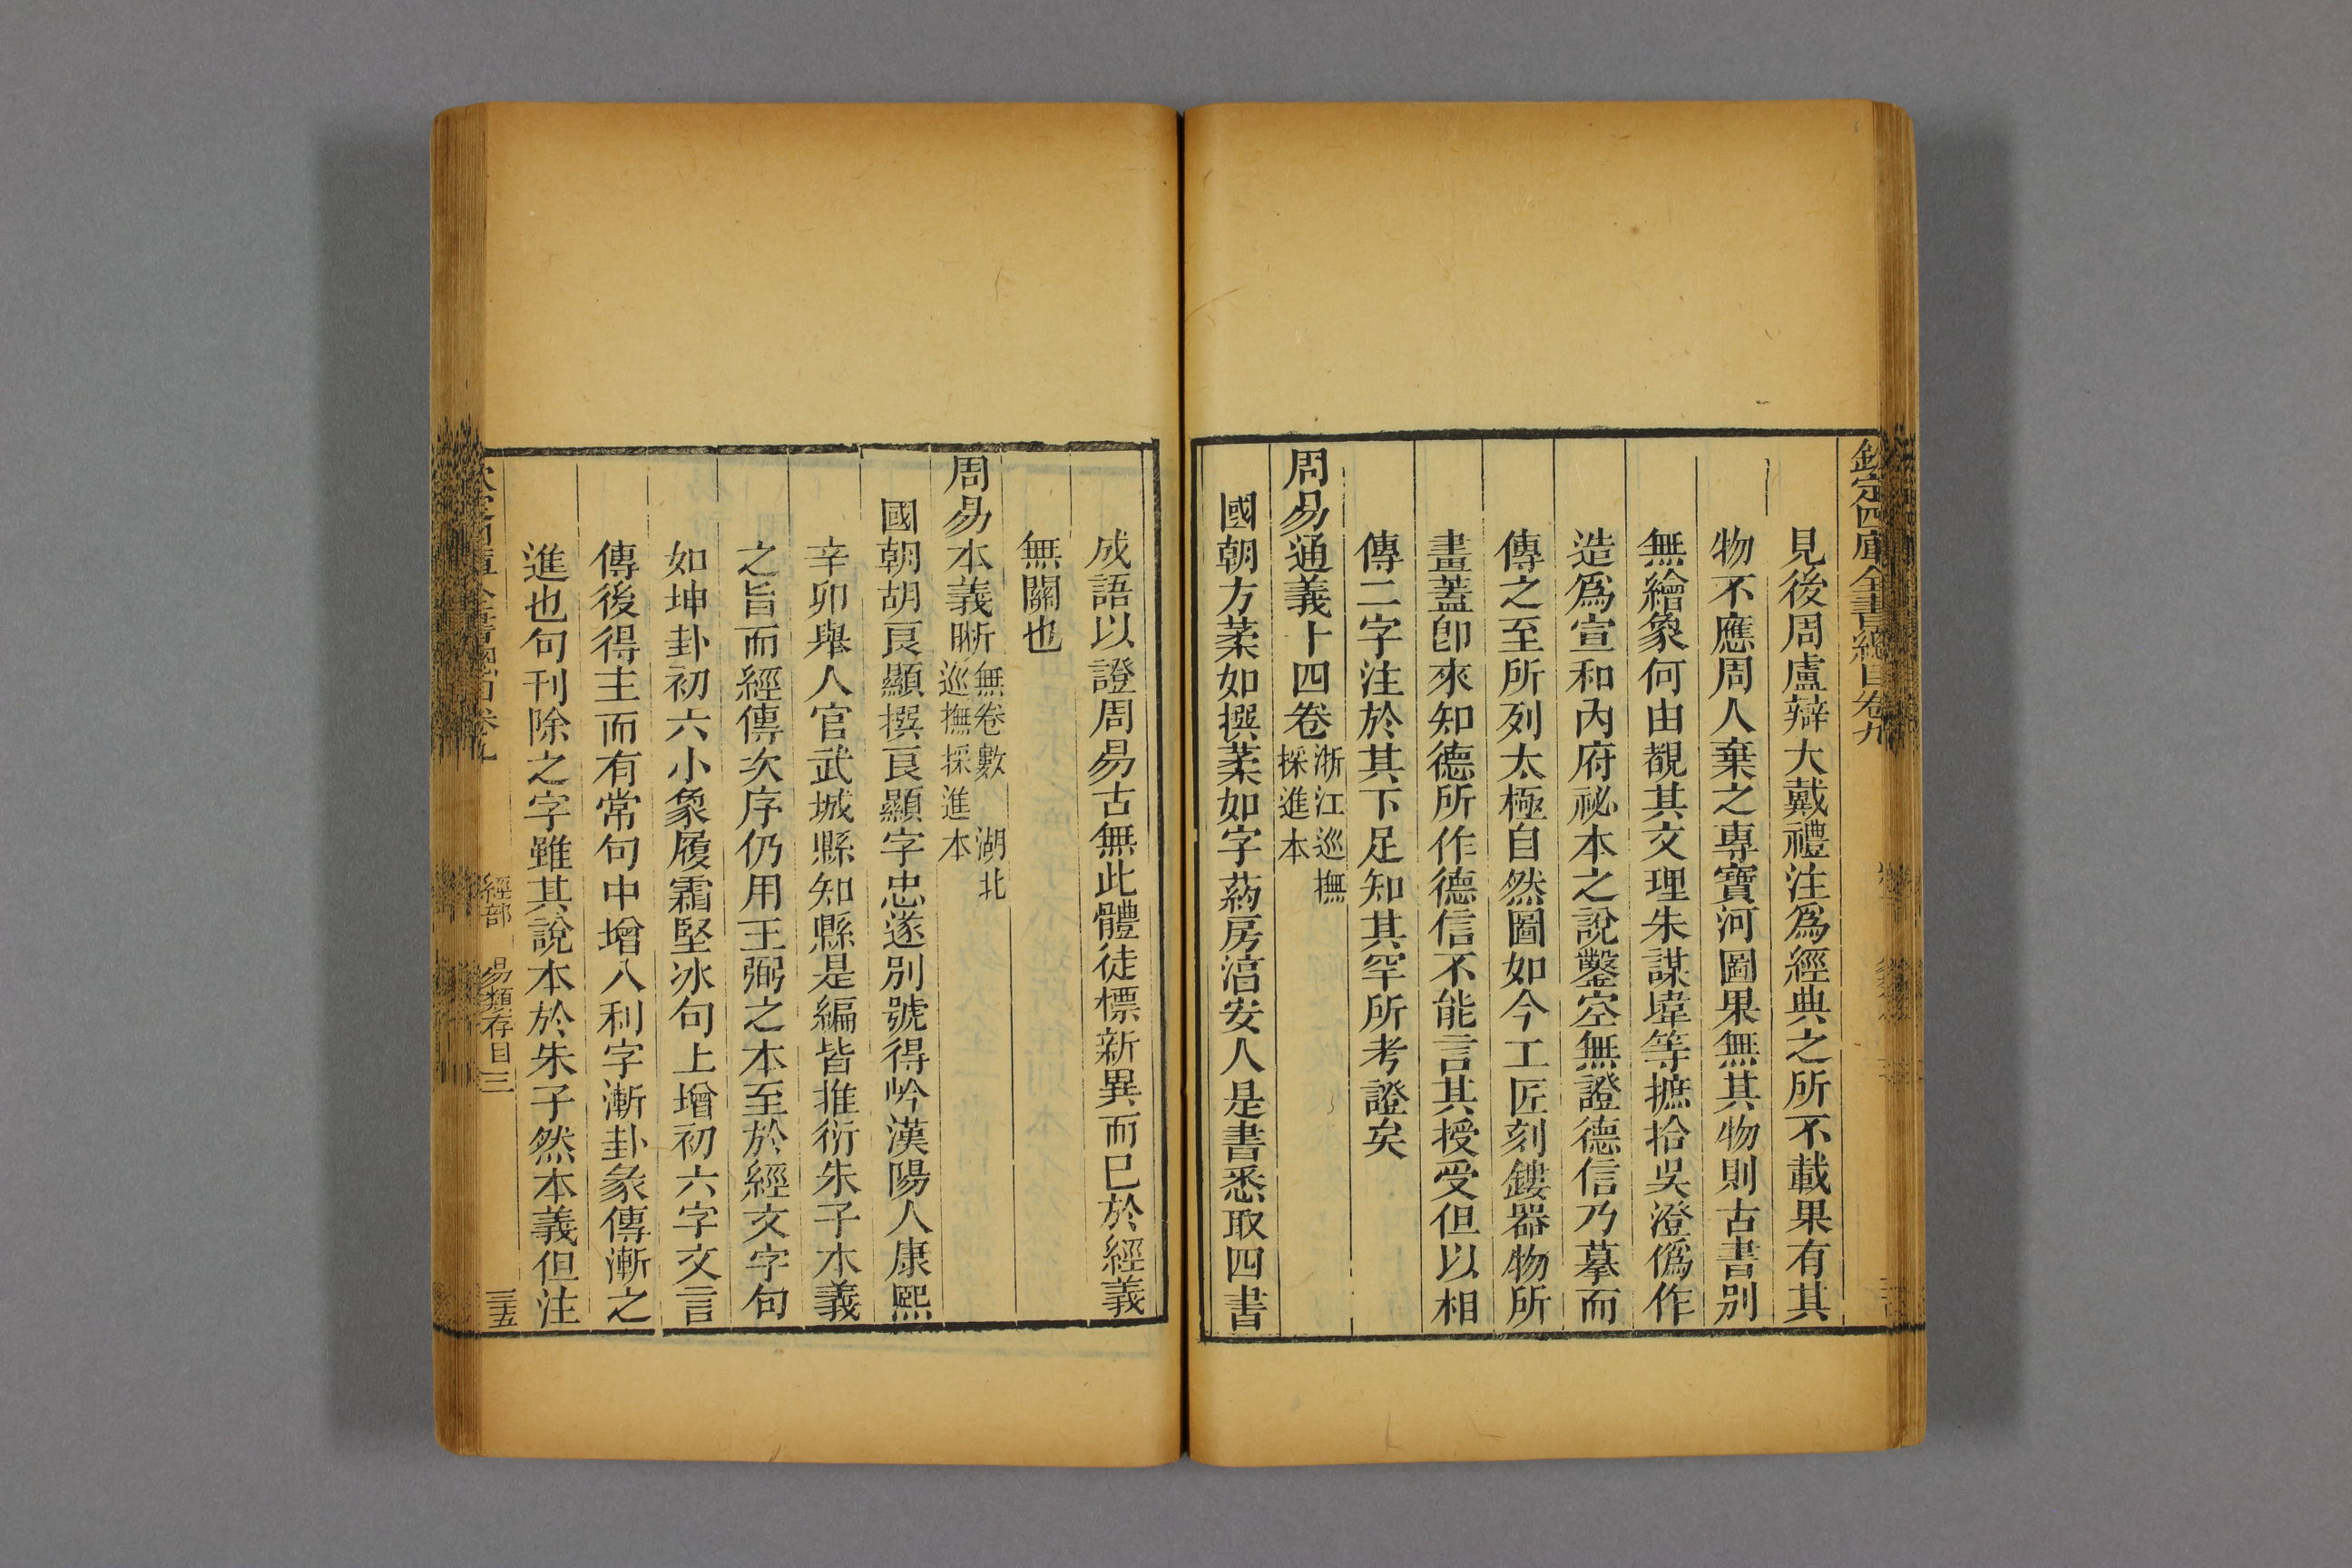 欽定四庫全書總目卷九
見後周盧辯大戴禮注爲經典之所不載果有其
物不應周人棄之專寶河圖果無其物則古書別
無繪象何由覩其文理朱謀㙔等摭拾吳澄僞作
造爲宣和內府祕本之說鑿空無證德信乃摹而
傳之至所列太極自然圖如今工匠刻鏤器物所
畫蓋卽來知德所作德信不能言其授受但以相
傳二字注於其下足知其罕所考證矣
周易通義十四卷浙江巡撫採進本
國朝方葇如撰葇如字葯房湻安人是書悉取四書
成語以證周易古無此體徒標新異而已於經義
無關也
周易本義晰無卷數 湖北巡撫採進本
國朝胡良顯撰良顯字忠遂別號得岭漢陽人康熙
辛卯舉人官武城縣知縣是編皆推衍朱子本義
之旨而經傳次序仍用王弼之本至於經文字句
如坤卦初六小象履霜堅冰句上增初六字文言
傳後得主而有常句中增入利字漸卦彖傳漸之
進也句刊除之字雖其說本於朱子然本義但注
經部 易類存目三
三五